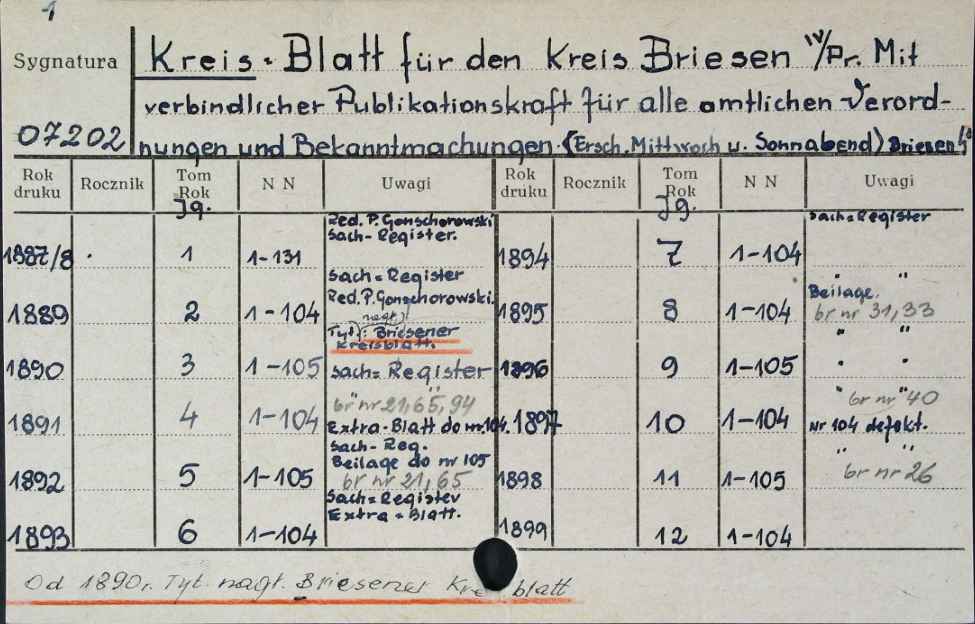 1
Sygnatura
07202
Kreis-Blatt für den Kreis Briesen W/Pr. Mit
verbindlicher Publikationskraft für alle amtlichen Verord-
nungen und Bekanntmachungen. (Ersch. Mittwoch u. Sonnabend) Briesen
Rok druku Rocznik Tom Rok N N Uwagi Rok druku Rocznik Tom Rok N N Uwagi
Jg. Jg.
Red. P. Gonschorowski Sach=Register
Sach-Register.
1887/8 1 1-131 1894 7 1-104
Sach=Register " "
Red. P. Gonschorowski. Beilage.
1889 2 1-104 1895 8 1-104 br nr 31,33
nagł.
Tyt.: Briesener " "
Kreisblatt.
1890 3 1-105 Sach=Register 1896 9 1-105 " "
br nr 21, 65, 94 " br nr "40
1891 4 1-104 Extra-Blatt do nr.104. 1897 10 1-104 Nr 104 defekt.
Sach-Reg. " "
Beilage do nr 105
1892 5 1-105 br nr 21, 65 1898 11 1-105 br nr 26
Sach=Register
Extra=Blatt.
1893 6 1-104 1899 12 1-104
Od 1890r. Tyt. nagł. Briesener Kre blatt